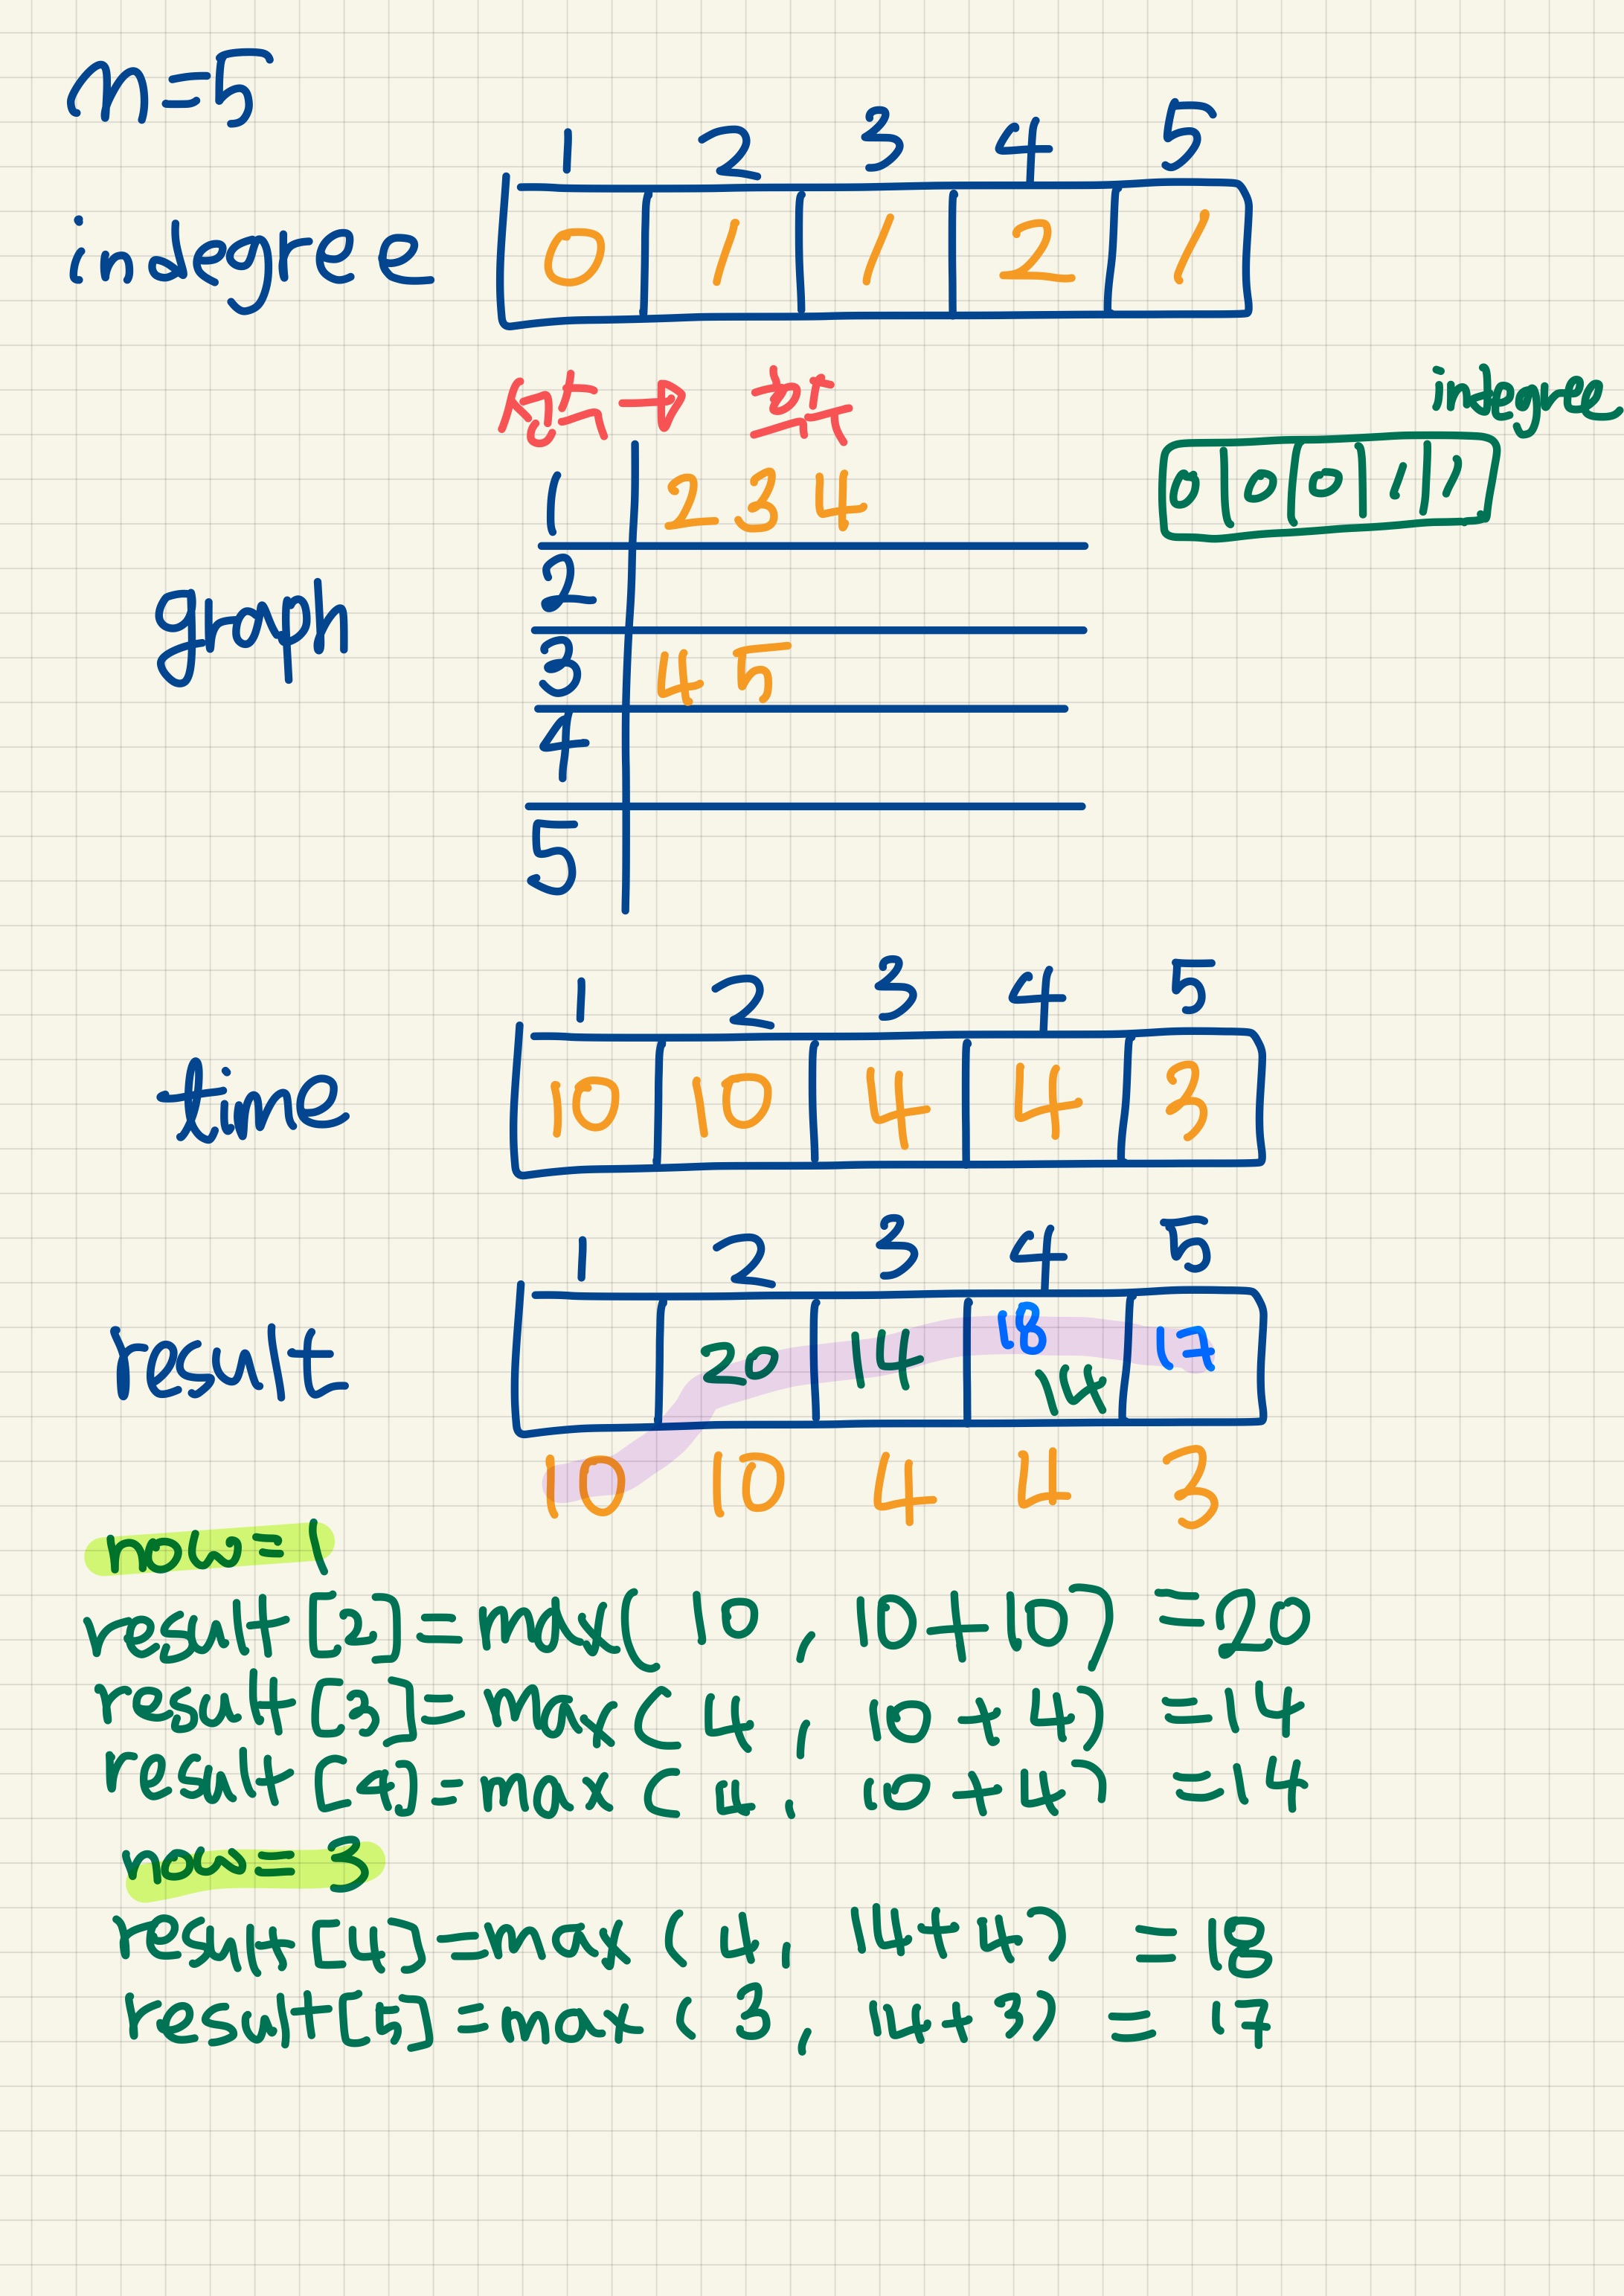 n=5
1 2 3 4 5
indegree 0 1 1 2 1
선수 → 후수
indegree
0 0 0 1 1
graph
1 2 3 4
2
3 4 5
4
5
1 2 3 4 5
time 10 10 4 4 3
1 2 3 4 5
result 20 14 18 14 17
10 10 4 4 3
now=1
result[2]=max(10, 10+10)=20
result[3]=max(4, 10+4)=14
result[4]=max(4, 10+4)=14
now=3
result[4]=max(4, 14+4)=18
result[5]=max(3, 14+3)=17